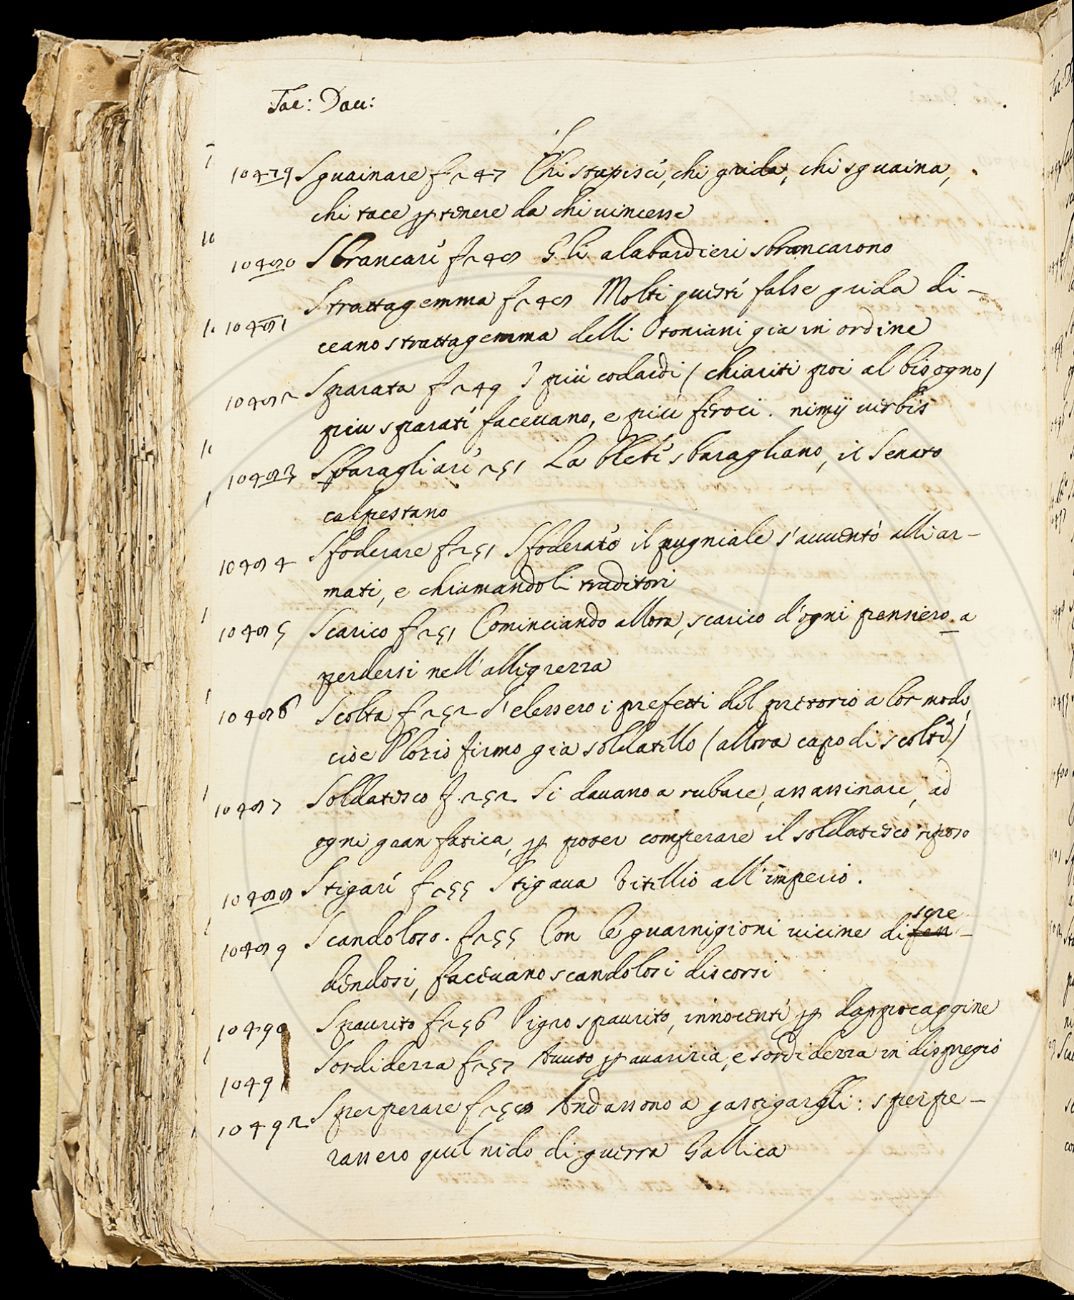 Tac: Dav:
10479 Sguainare f 247 Chi stupisce, chi grida, chi sguaina,
chi tace per tenere da chi vincesse
10480 Sbrancare f 248 Gli alabardieri sbrancarono
10481 Strattagemma f 248 Molti queste false grida di-
ceano strattagemma delli Otoniani gia in ordine
10482 Sparata f 249 I più codardi (chiariti poi al bisogno)
piu sparate facevano, e piu feroci. nimij verbis
10483 Sbaragliare 251 La Plebe sbaragliano, il Senato
calpestano
10484 Sfoderare f 251 Sfoderato il pugniale s'avventò alli ar-
mati, e chiamandoli traditori
10485 Scarico f 251 Cominciando allora, scarico d'ogni pensiero. a
perdersi nell'allegrezza
10486 Scolta f 252 S'elessero i prefetti del pretorio a lor modo,
cioe Plozio firmo gia soldatello (allora capo di scolte)
10487 Soldatesco f 252 Si davano a rubare, assassinare, ad
ogni gran fatica, per poter comperare il soldatesco riposo
10488 Stigare f 255 Stigava Vitellio all'imperio.
10489 Scandoloso. f 255 Con le guarnigioni vicine discre-
dendosi, facevano scandolosi discorsi
10490 Spaurito f 256 Pigro spaurito, innocente per dappocaggine
10491 Sordidezza f 257 Avuto per avarizia, e sordidezza in dispregio
10492 Sperperare f 258 Andassono a gastigargli: sperpe-
rassero quel nido di guerra Gallica